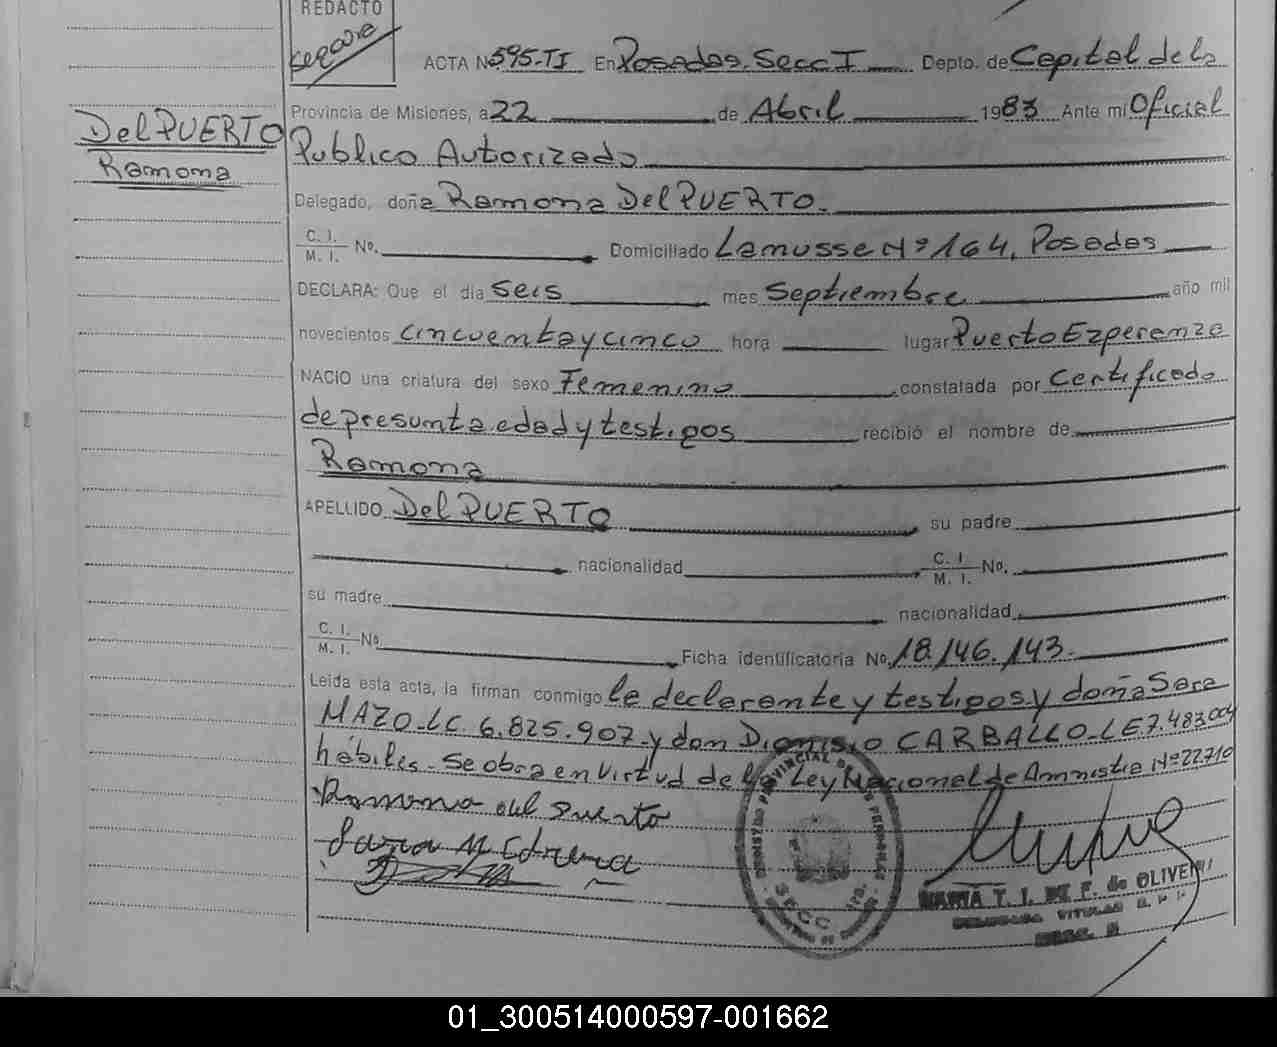 REDACTO
ACTA Nº 595-TI En Posadas. Secc I Depto. de Capital de la
Provincia de Misiones, a 22 de Abril 1983 Ante mi Oficial
Del PUERTO
Ramona
Publico Autorizado
Delegado, doña Ramona Del PUERTO.
C. I.
M. I. No. Domiciliado Lamusse Nº 164, Posadas
DECLARA: Que el dia seis mes Septiembre año mil
novecientos cincuenta y cinco hora lugar Puerto Ezperanza
NACIO una criatura del sexo Femenino constatada por Certificado
de presunta edad y testigos recibió el nombre de
Ramona
APELLIDO Del PUERTO su padre
nacionalidad C. I. M. I. No.
su madre nacionalidad
C. I.
M. I. No. Ficha identificatoria No. 18.146.143.
Leida esta acta, la firman conmigo la declarante y testigos y doña Sara
MAZO-LC. 6.825.907-y don Dionisio CARBALLO-LE 7.483.004
hábiles-Se obra en Virtud de la Ley Nacional de Amnistia Nº 22710
Ramona del Puerto
REGISTRO PROVINCIAL DE LAS PERSONAS
SECC. 1ra.
MARIA T. I. DE F. de OLIVERI
DELEGADA TITULAR
SECC.
01_300514000597-001662